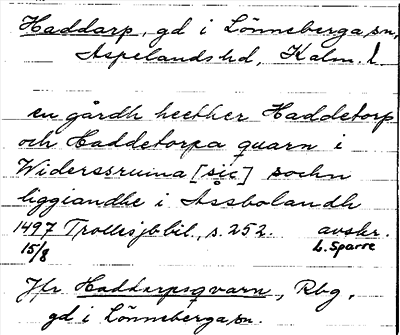 Haddarp, gd i Lönneberga sn,
Aspelands hd, Kalm. l.
en gårdh heether Haddetorp
och Haddetorpa quarn i
Widerssruma [sic] sochn
liggiandhe i Assbolandh
1497 Trollesjb bil, s. 252. avskr.
15/8 L. Sparre
Jfr Haddarpsqvarn, Rbg,
gd i Lönneberga sn.